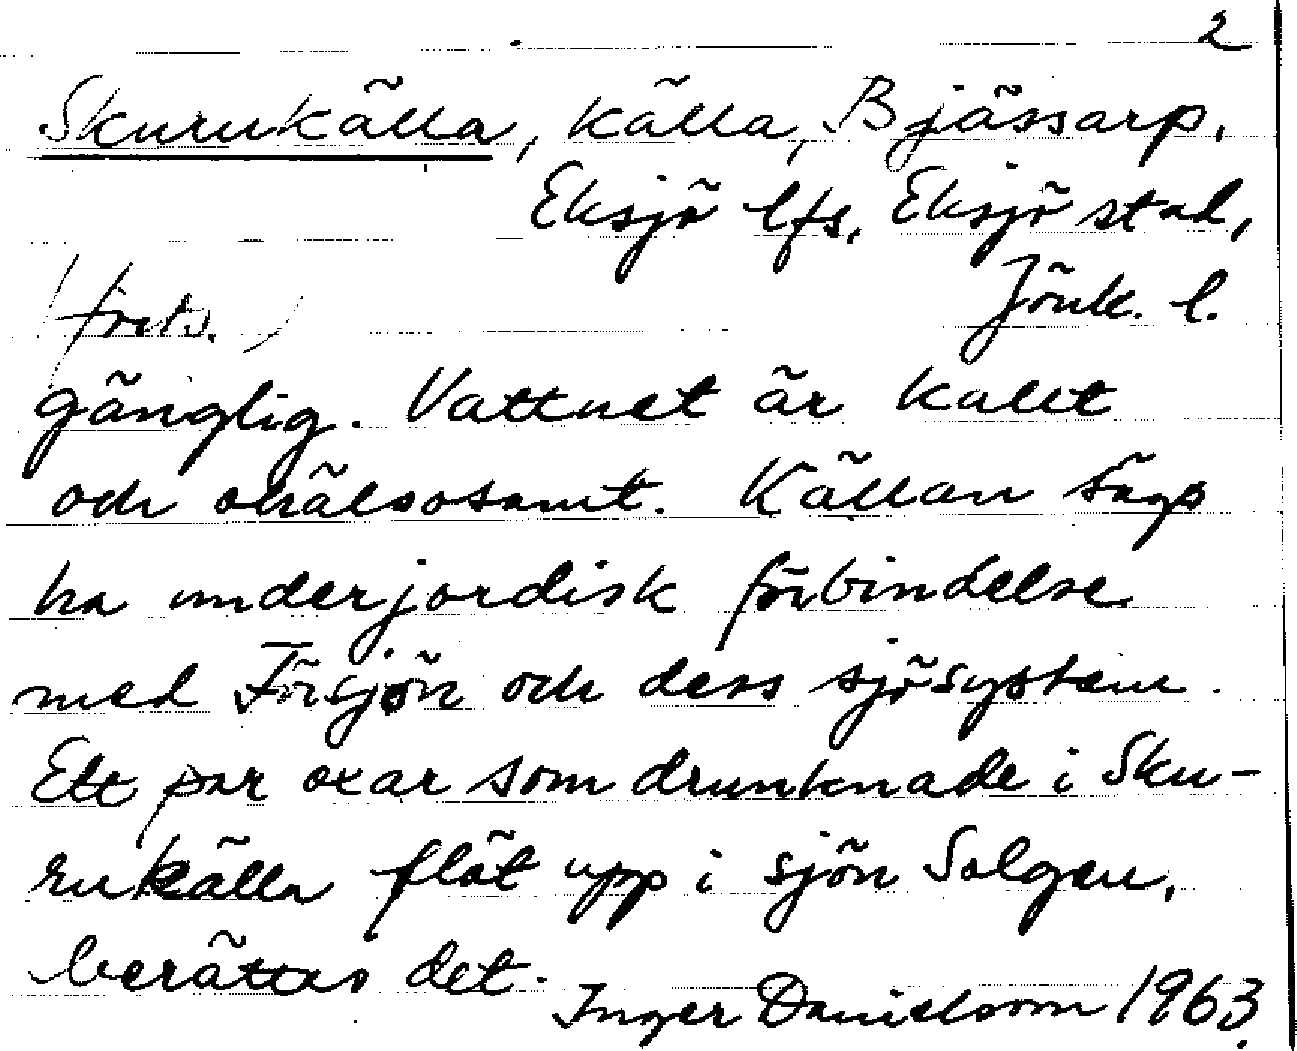 2
Skurukälla, källa, Bjässarp,
Eksjö lfs, Eksjö stad,
(forts.) Jönk. l.
gänglig. Vattnet är kallt
och ohälsosamt. Källan sägs
ha underjordisk förbindelse
med Försjön och dess sjösystem.
Ett par oxar som drunknade i Sku-
rukälla flöt upp i sjön Solgen,
berättas det.
Inger Danielsson 1963.